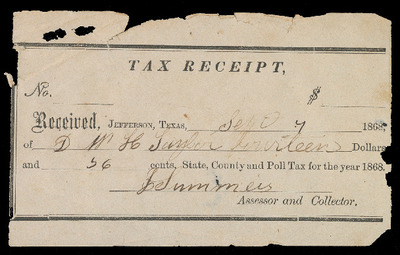 TAX RECEIPT,
No. $
Received, JEFFERSON, TEXAS, Sept 7 1868,
of D W H Taylor Fourteen Dollars
and 56 cents, State, County and Poll Tax for the year 1868.
J Summers
Assessor and Collector.